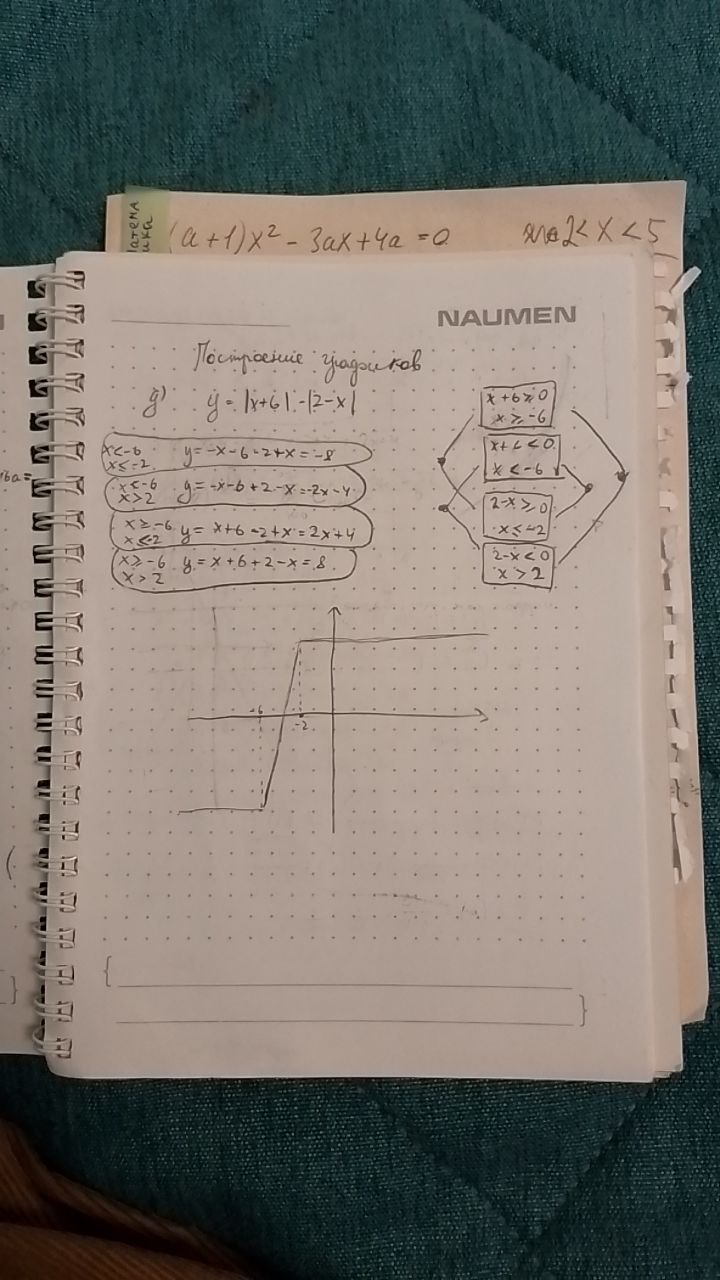 матема
ика
(a+1)x² - 3ax + 4a = 0
2 < x < 5
NAUMEN
Построение графиков
g) y = |x+6| - |2-x|
x < -6
x ≤ -2
y = -x-6-2+x = -8
x < -6
x > 2
y = -x-6+2-x = -2x-4
x ≥ -6
x ≤ 2
y = x+6-2+x = 2x+4
x ≥ -6
x > 2
y = x+6+2-x = 8
x+6 ≥ 0
x ≥ -6
x+6 < 0
x < -6
2-x ≥ 0
x ≤ -2
2-x < 0
x > 2
-6
-2